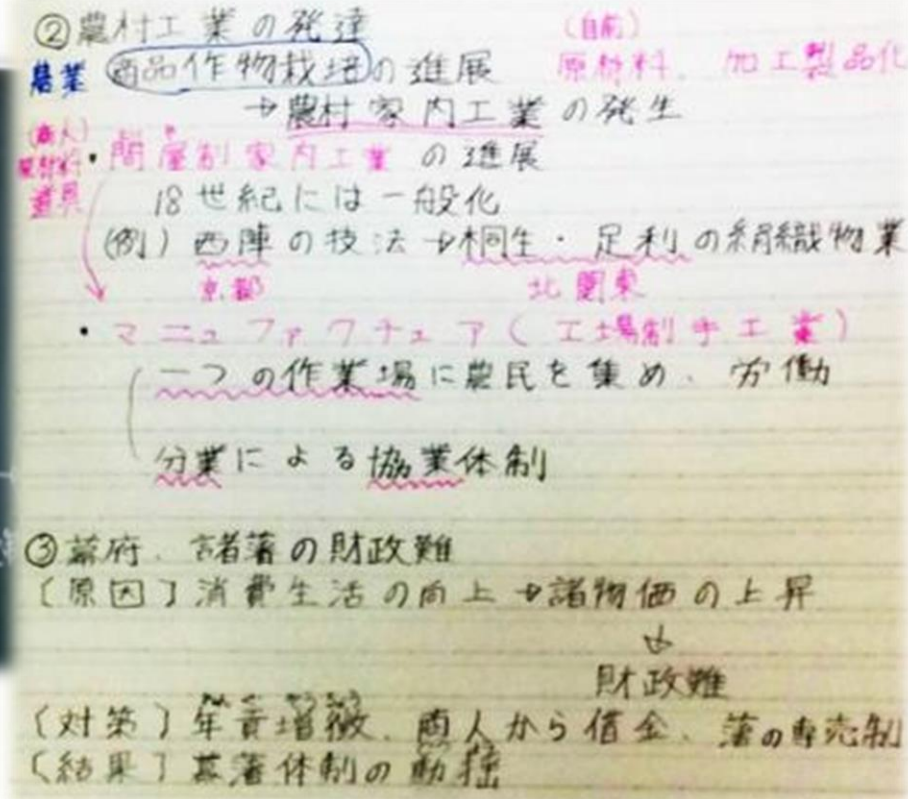 ②農村工業の発達 (自前)
農業 商品作物栽培の進展 原材料、加工製品化
→農村家内工業の発生
(商人)
原材料・問屋制家内工業の進展
道具 18世紀には一般化
(例)西陣の技法→桐生・足利の絹織物業
京都 北関東
・マニュファクチュア(工場制手工業)
一つの作業場に農民を集め、労働
分業による協業体制
③幕府、諸藩の財政難
〔原因〕消費生活の向上→諸物価の上昇
↓
財政難
〔対策〕年貢増徴、商人から借金、藩の専売制
〔結果〕幕藩体制の動揺